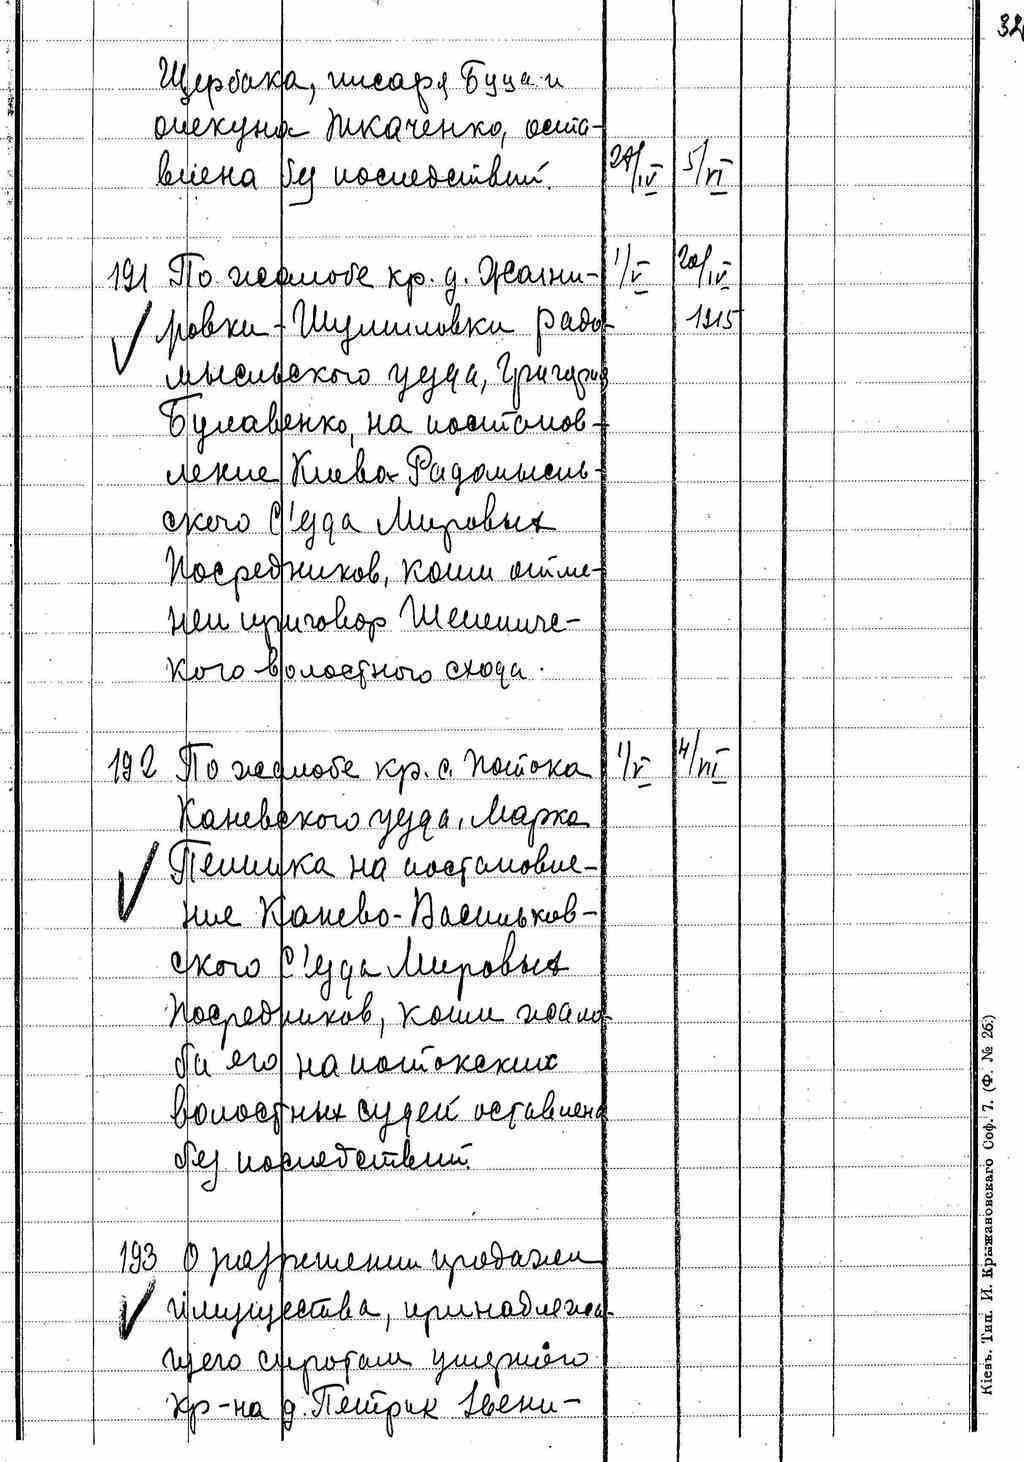 32
Щербака, писаря Буца и
опекуна Ткаченко, оста-
влена без последствий. 24/IV 5/VI
191 По жалобе кр. д. Жагни- 1/V 20/IV
ровки-Шумиловки радо- 1915
мысльского уезда, Григория
Булавенко, на постанов-
ление Киево-Радомысль-
ского С'езда Мировых
Посредников, коим отме-
нен приговор Шепеличе-
кого волостного схода.
192 По жалобе кр. с. Потока 1/V 4/VI
Каневского уезда, Марка
на постановле-
ние Канево-Васильков-
ского С'езда Мировых
Посредников, коим жало-
ба его на потокских
волостных судей оставлена
без последствий
193 О разрешении продажи
имущества, принадлежа-
щего сиротам умершего
кр-на д. Петрик Звени-
Кіевъ. Тип. И. Крыжановскаго Соф. 7. (Ф. № 26.)